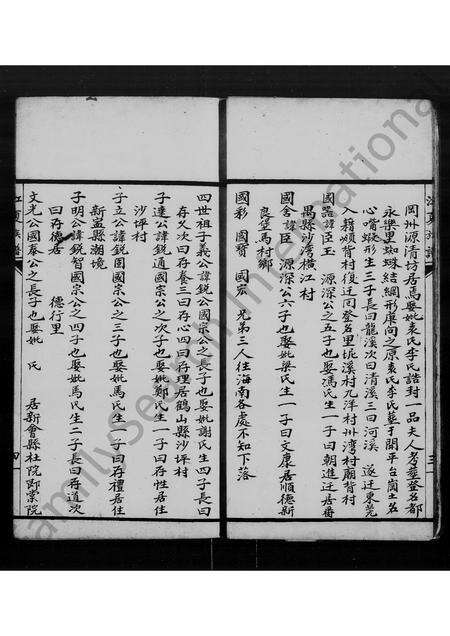 岡州源清坊居馬娶妣袁氏李氏誥封一品夫人考葬登名都
永樂里蜘蛛結網形庚向之原袁氏李氏葬于開平台崗土名
心嘴蜈蚣形生三子長曰龍溪次曰清溪三曰河溪 遂迁東莞
入籍 背村復迁回登名里 溪村九洋村州灣村廟背村
國器諱臣玉 源深公之五子也娶馮氏生一子曰朝進迁居番
禺縣沙灣橫江村
國舍諱臣 源深公六子也娶妣梁氏生一子曰文康居順德新
良堡馬村鄉
國彩 國寶 國宏 兄弟三人往海南各處不知下落
江夏族譜
四世祖子義公諱銳公國宗公之長子也娶妣謝氏生四子長曰
存久次曰存養三曰存心四曰存理居鶴山縣沙坪村
子達公諱銳通國宗公之次子也娶妣鄭氏生一子曰存性居住
沙坪村
子立公諱銳國宗公之三子也娶妣馬氏生一子曰存禮居住
新寧縣潮境
子明公諱銳智國宗公之四子也娶妣馬氏生二子長曰存道次
曰存德居 德行里
文光公國泰公之長子也娶妣 氏 居新會縣杜院
江夏族譜
四
FamilySearch International